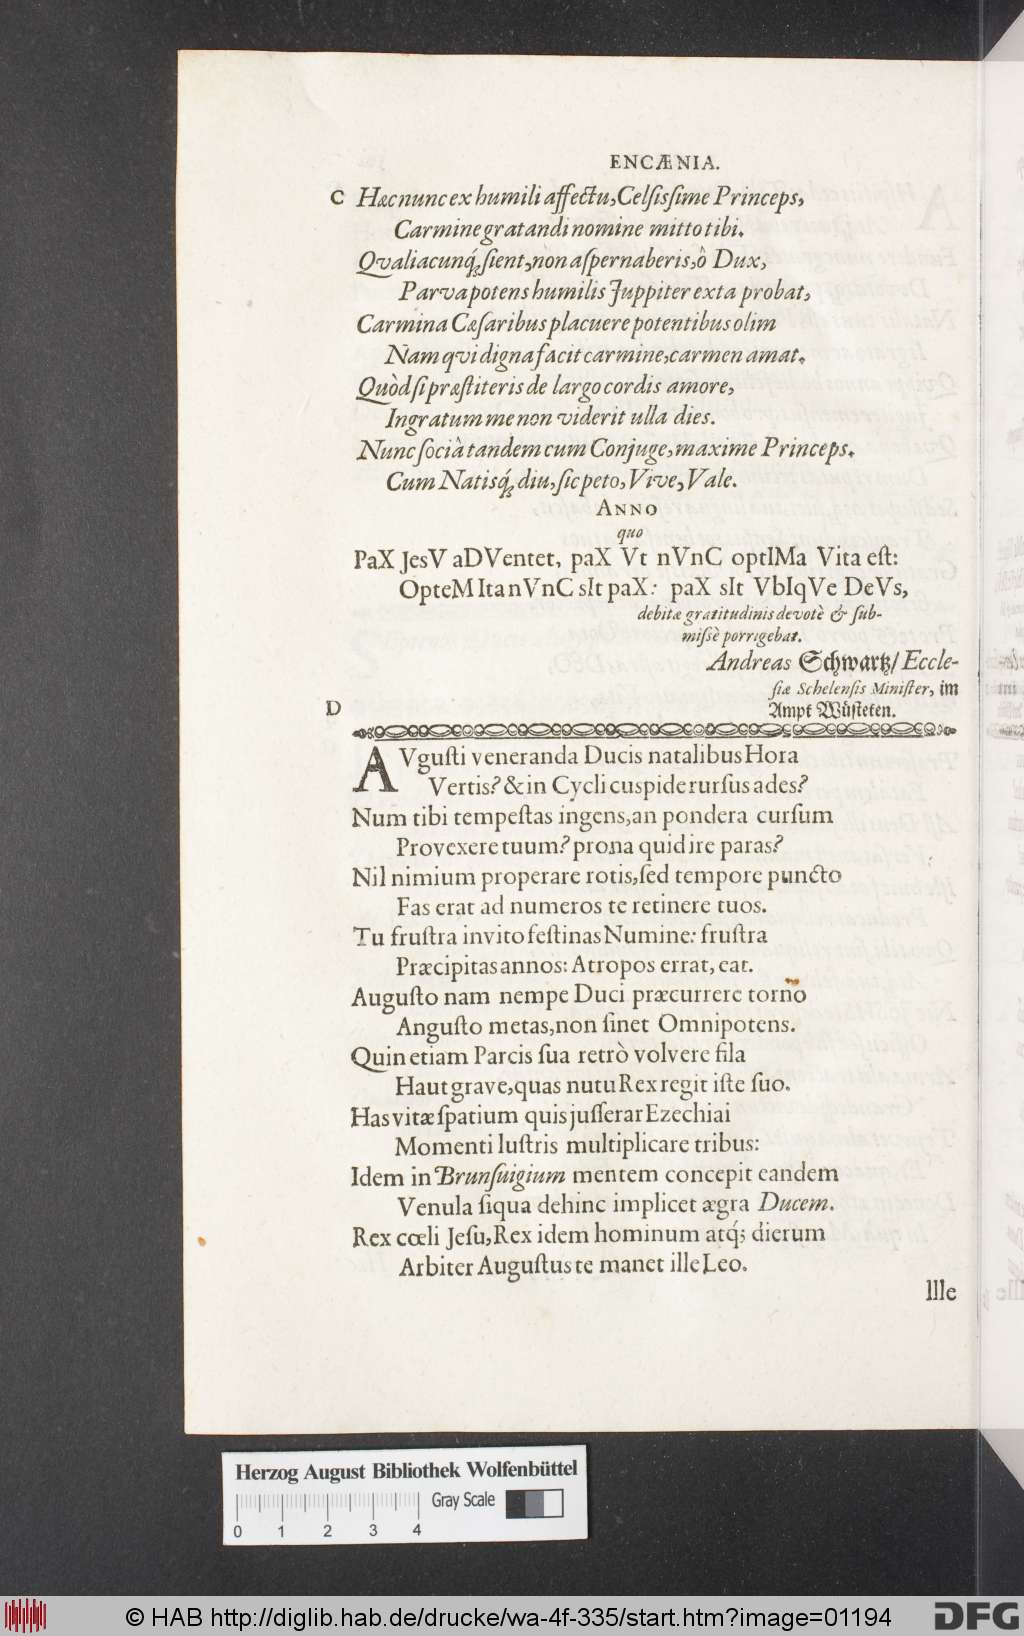 ENCÆNIA.
C Hæc nunc ex humili affectu, Celſisſime Princeps,
Carmine gratandi nomine mitto tibi.
Qvaliacunq́; ſient, non aſpernaberis, ô Dux,
Parva potens humilis Juppiter exta probat,
Carmina Cæſaribus placuere potentibus olim
Nam qvi digna facit carmine, carmen amat.
Quòd ſi præſtiteris de largo cordis amore,
Ingratum me non viderit ulla dies.
Nunc ſociâ tandem cum Conjuge, maxime Princeps.
Cum Natisq́; diu, ſic peto, Vive, Vale.
ANNO
quo
PaX JesV aDVentet, paX Vt nVnC optIMa Vita eſt:
OpteM Ita nVnC sIt paX: paX sIt VbIqVe DeVs,
debitæ gratitudinis devotè & ſub-
miſsè porrigebat.
Andreas Schwartz/ Eccle-
ſiæ Schelenſis Miniſter, im
D Ampt Wüſteten.
AVguſti veneranda Ducis natalibus Hora
Vertis? & in Cycli cuspide rurſus ades?
Num tibi tempeſtas ingens, an pondera curſum
Provexere tuum? prona quid ire paras?
Nil nimium properare rotis, ſed tempore puncto
Fas erat ad numeros te retinere tuos.
Tu fruſtra invito feſtinas Numine: fruſtra
Præcipitas annos: Atropos errat, eat.
Auguſto nam nempe Duci præcurrere torno
Anguſto metas, non ſinet Omnipotens.
Quin etiam Parcis ſua retrò volvere fila
Haut grave, quas nutu Rex regit iſte ſuo.
Has vitæ ſpatium quis juſſerar Ezechiai
Momenti luſtris multiplicare tribus:
Idem in Brunſuigium mentem concepit eandem
Venula ſiqua dehinc implicet ægra Ducem.
Rex cœli Jeſu, Rex idem hominum atq́; dierum
Arbiter Auguſtus te manet ille Leo.
Ille
Herzog August Bibliothek Wolfenbüttel
Gray Scale
0 1 2 3 4
© HAB http://diglib.hab.de/drucke/wa-4f-335/start.htm?image=01194
DFG